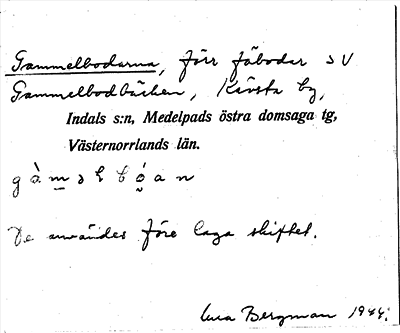 Gammelbodarna, förr fäbodar SV
Gammelbodbäcken, Kävsta by,
Indals s:n, Medelpads östra domsaga tg,
Västernorrlands län.
De användes före laga skiftet.
Bergman 1944.